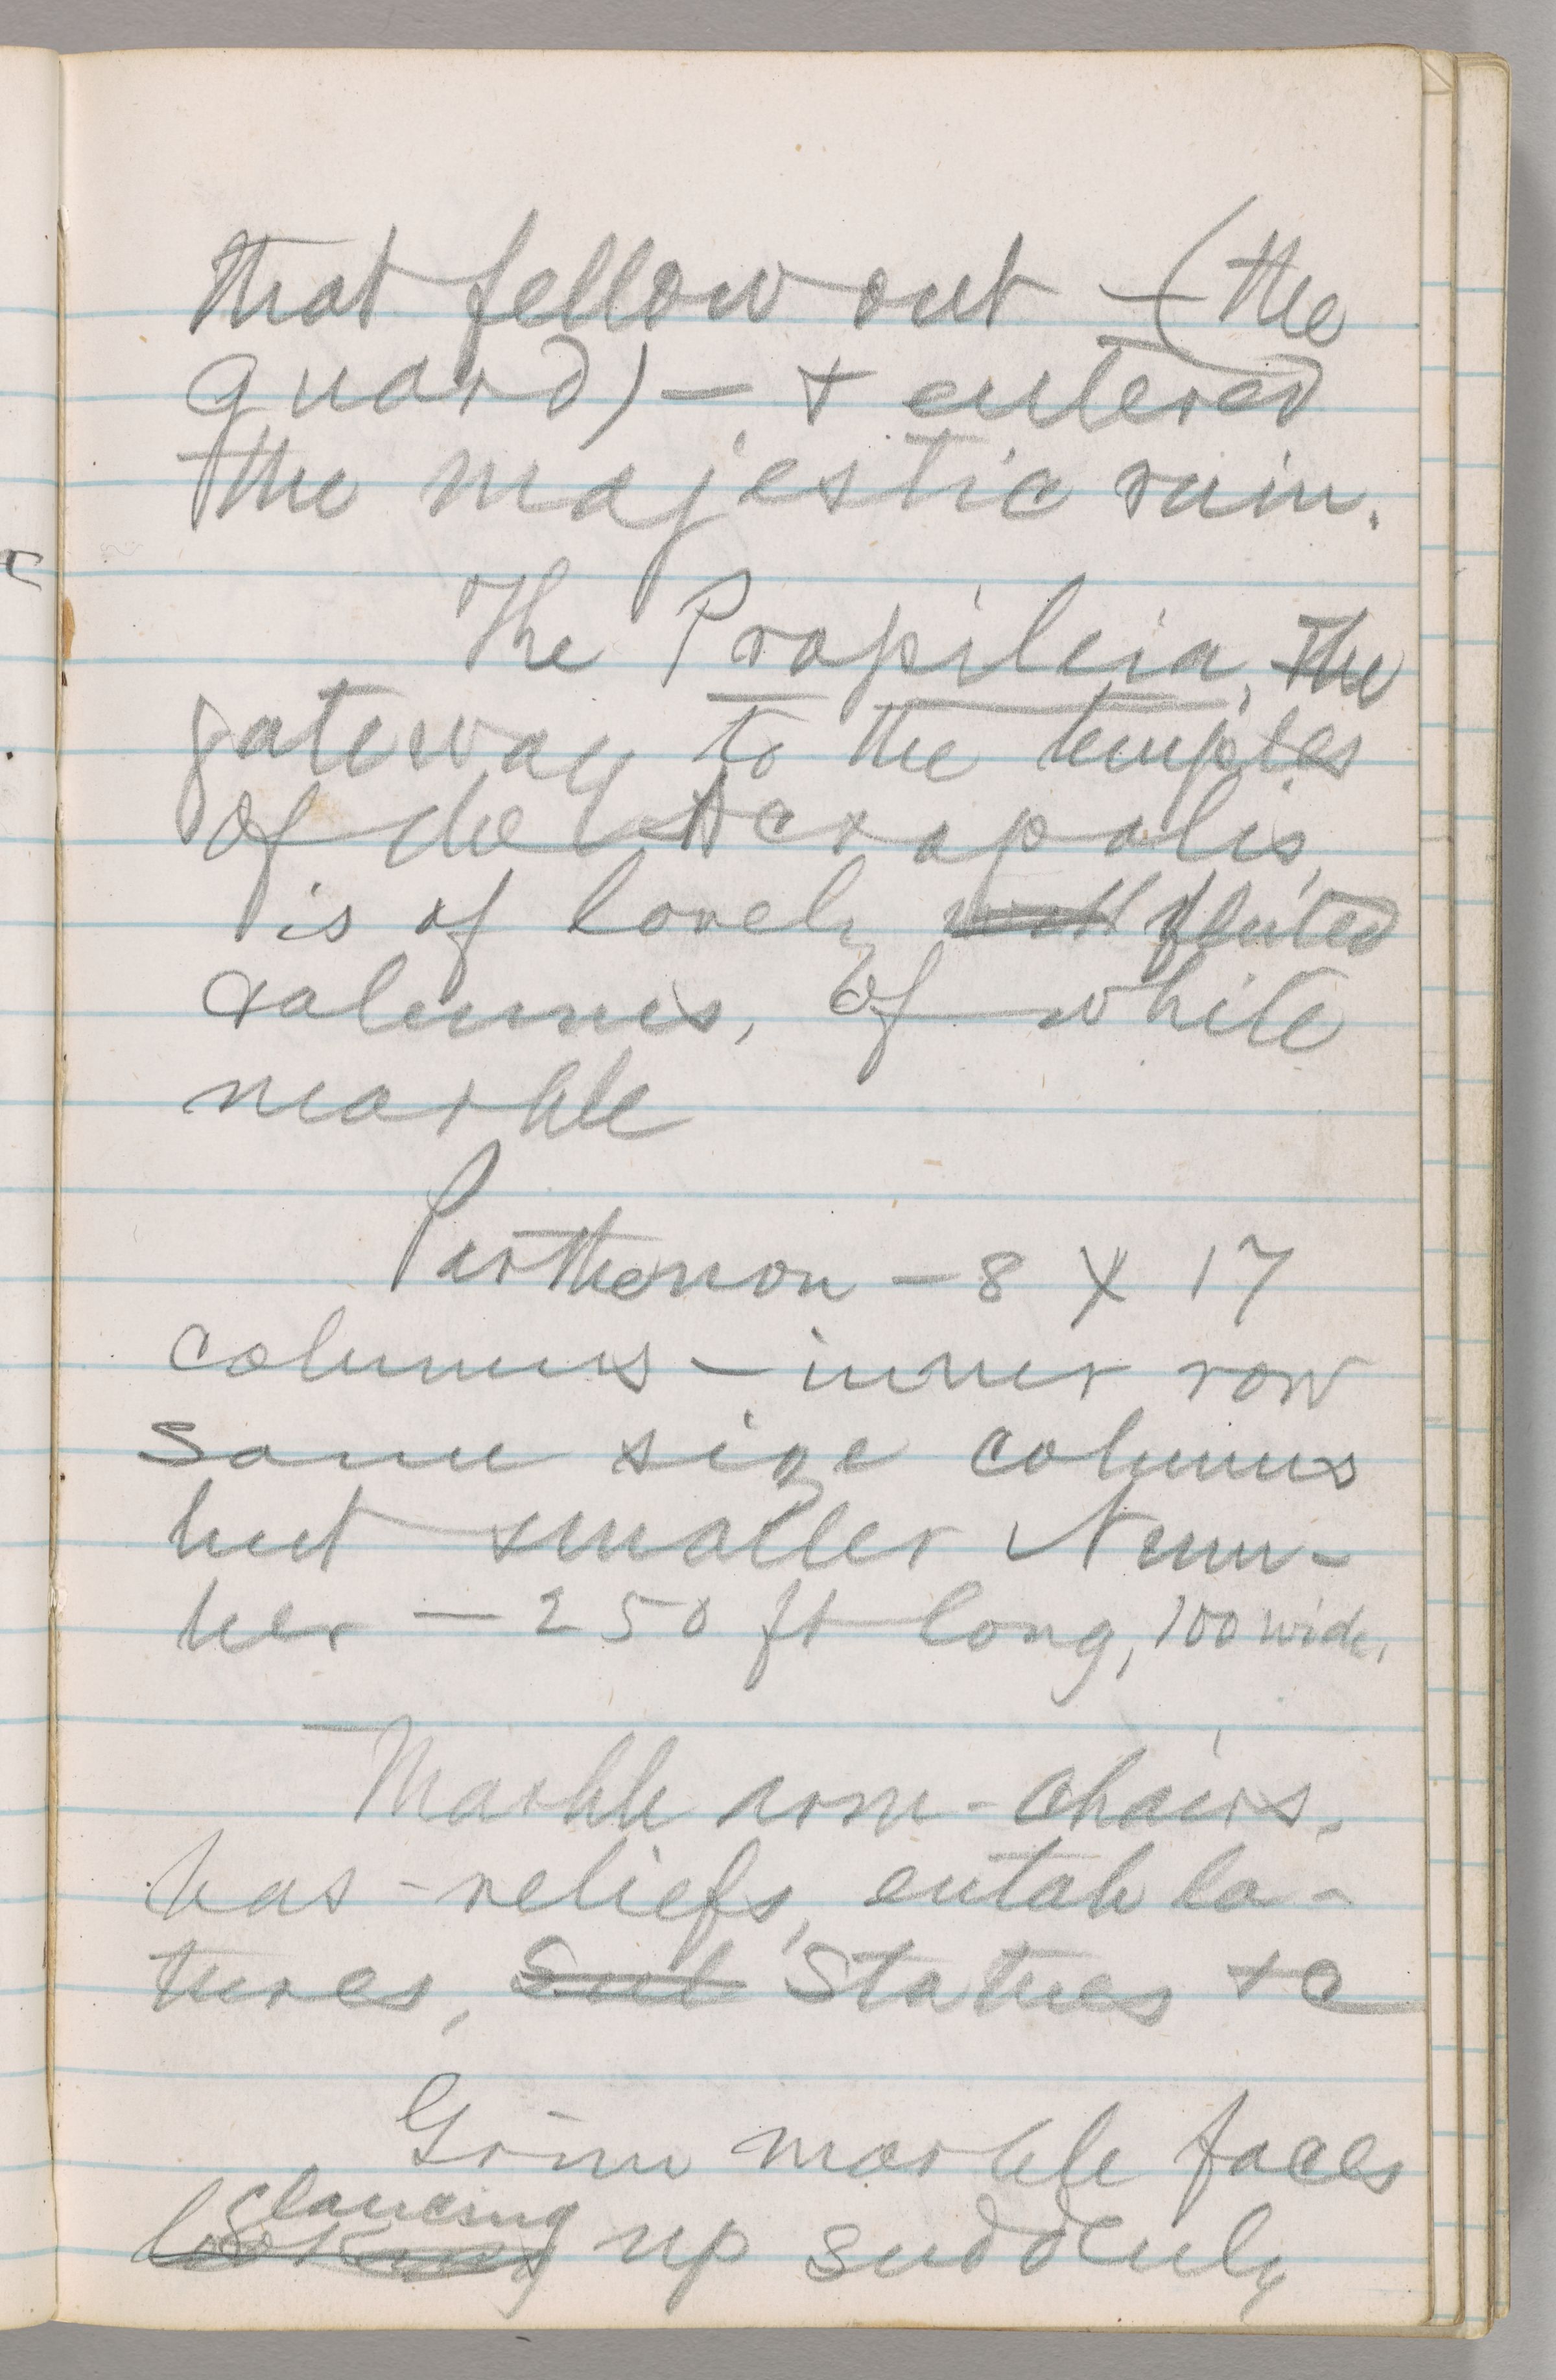 that fellow out — (the
guard) — & entered
the majestic ruin.
The Propileia, the
gateway to the temples
of the Acropolis,
is of lovely fluted
columns, of white
marble
Parthenon — 8 X 17
columns — inner row
same size columns
but smaller num-
ber — 250 ft long, 100 wide.
Marble arm-chairs,
bas-reliefs, entabla-
tures, Sub Statues &c
Grim marble faces
glancing
looking up suddenly